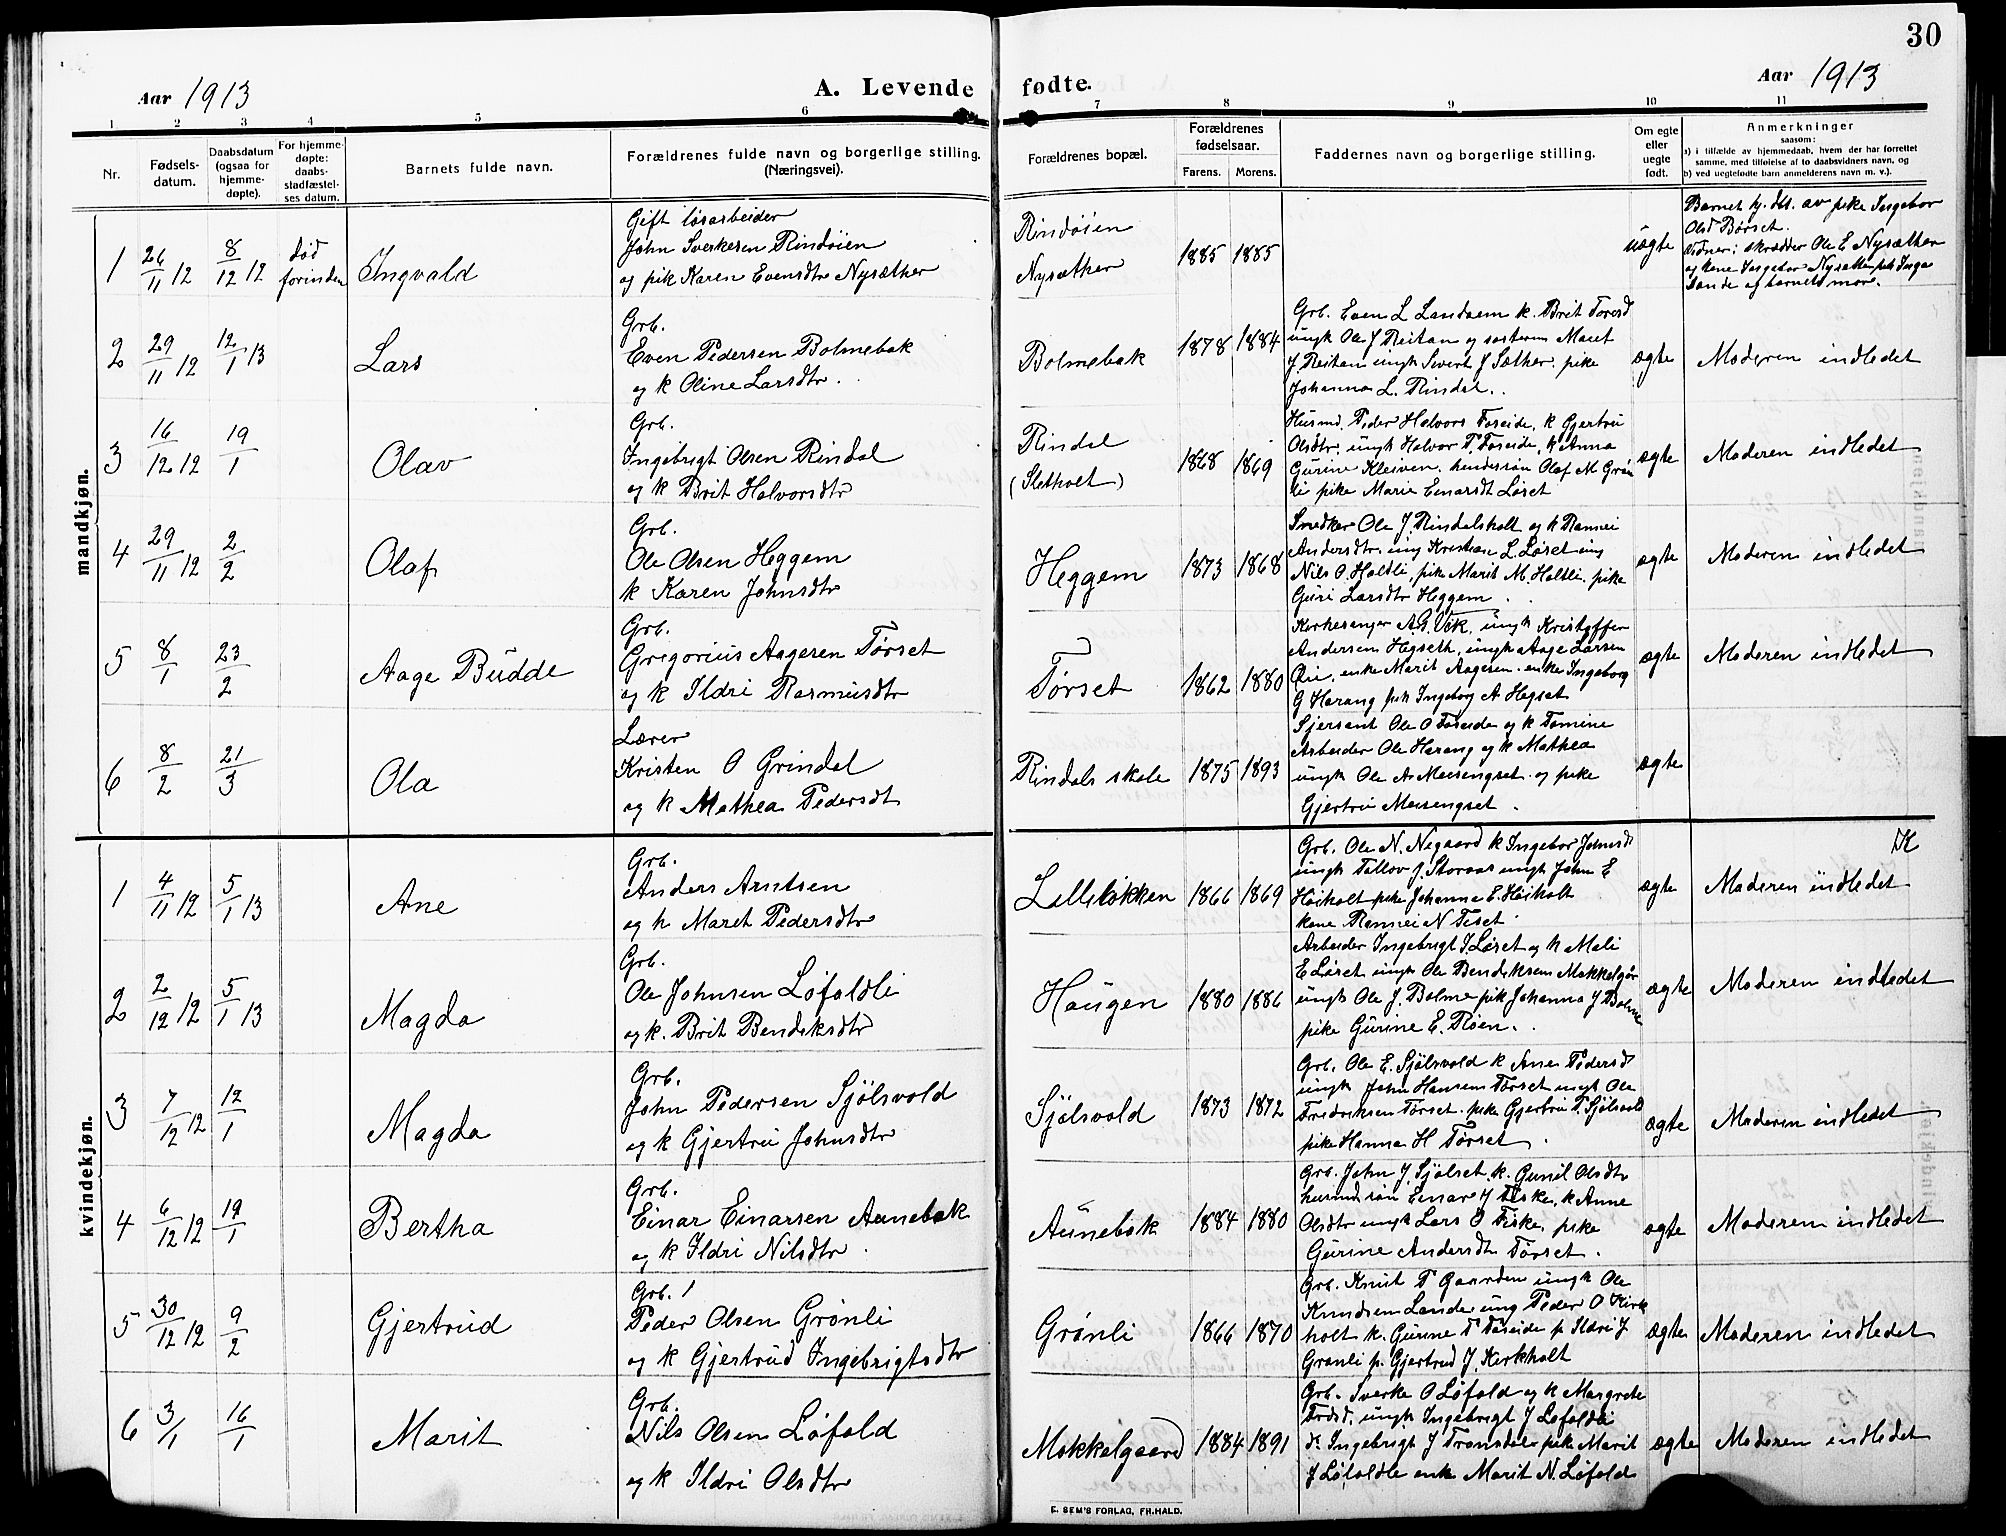 30
Aar 1913
A. Levende fødte.
Aar 1913
1 2 3 4 5 6 7 8 9 10 11
Nr.
Fødsels-
datum.
Daabsdatum
(ogsaa for
hjemme-
døpte).
For hjemme-
døpte:
daabs-
stadfæstel-
ses datum.
Barnets fulde navn.
Forældrenes fulde navn og borgerlige stilling.
(Næringsvei).
Forældrenes bopæl.
Forældrenes
fødselsaar.
Farens. Morens.
Faddernes navn og borgerlige stilling.
Om egte
eller
uegte
født.
Anmerkninger
saasom:
a) i tilfælde av hjemmedaab, hvem der har forrettet
samme, med tilføielse af to daabsvidners navn, og
b) ved uegtefødte barn anmelderens navn m. v.).
mandkjøn.
1 26/11 12 8/12 12 død forinden Ingvald
Gift løsarbeider
John Sverkesen Rindøien
og pik Karen Evensdtr Nysæther
Rindøien
Nysæther
1885 1885
uægte
Barnet hj. dbt. av pike Ingebor
Olsd Børset.
Vidner: skrædder Ole E Nysæther
og kone Ingebor Nysæther pik Inga
Sande af barnets mor.
2 29/11 12 12/1 13 Lars
Grb.
Even Pedersen Bolmebak
og k Oline Larsdtr.
Bolmebak
1878 1884
Grb. Even L Landsem k. Brit Toresd
ungk Ole J Reitan og søsteren Maret
J Reitan ungk Sivert J Sæther. pike
Johanna L. Rindal.
ægte
Moderen indledet
3 16/12 12 19/1 Olav
Grb.
Ingebrigt Olsen Rindal
og k Brit Halvorsdtr
Rindal
(Sletholt)
1868 1869
Husmd. Peder Halvors Foseide, k Gjertru
Olsdtr, ungk Halvor P Foseide, k Anna
Gurine Kleiven, hendes søn Olaf M Grøn
li pike Marie Einarsdt Løset
ægte
Moderen indledet
4 29/11 12 2/2 Olaf
Grb.
Ole Olsen Heggem
k Karen Johnsdtr
Heggem
1873 1868
Snedker Ole J. Rindalsholt og k Rannei
Andersdtr. ung Kristian L. Løset ung
Nils O. Holtli, pike Marit M. Holtli. pike
Guri Larsdtr Heggem.
ægte
Moderen indledet
5 8/1 23/2 Aage Budde
Grb.
Gregorius Aagesen Tørset
og k Ildri Rasmusdtr
Tørset
1862 1880
Kirkesanger A. G. Vik, ungk Kristoffer
Andersen Hegseth, ungk Aage Larsen
enke Marit Aagesen. enke Ingeborg
G Harang pik Ingeborg A Hegset
ægte
Moderen indledet
6 8/2 21/3 Ola
Lærer
Kristen O Grindal
og k Mathea Pedersdt
Rindals skole
1875 1893
Sjersant Ole O Foseide og k Tomine
Arbeider Ole Harang og k Mathea
ungk Ole A. Moesengset og pike
Gjertru Moesengset.
ægte
kvindekjøn.
1 4/11 12 5/1 13 Ane
Grb.
Anders Arntsen
og k Maret Pedersdtr
Lilleløkken
1866 1869
Grb. Ole N. Negaard k Ingebor Johnsd
ungk Tollov J. Storaas ungk John E
Høiholt pike Johanna E. Høiholt
kone Rannei N Tiset
ægte
K
Moderen indledet
2 2/12 12 5/1 13 Magda
Grb.
Ole Johnsen Løfaldli
og k. Brit Bendiksdtr
Haugen
1880 1886
Arbeider Ingebrigt J. Løset og k Mali
E Løset ungk Ole Bendiksen Mokkelgår
ungk Ole J. Bolme pik Johanna J Bolme
pike Gurine E. Røen.
ægte
Moderen indledet
3 7/12 12 12/1 Magda
Grb.
John Pedersen Sjølsvold
og k Gjertru Johnsdtr
Sjølsvold
1873 1872
Grb. Ole E. Sjølsvold k Ane Pedersd
ungk John Hansen Tørset ungk Ole
Fredriksen Tørset. pike Gjertru P. Sjølsvold
pike Hanna H Tørset.
ægte
Moderen indledet
4 6/12 12 19/1 Bertha
Grb.
Einar Einarsen Aunebak
og k Ildri Nilsdtr.
Aunebak
1884 1880
Grb. John J. Sjølset. k. Gunil Olsdtr
husmdssøn Einar J Fiske, k Anne
Olsdtr ungk Lars O Fiske, pike
Gurine Andersdt Tørset.
ægte
Moderen indledet
5 30/12 12 9/2 Gjertrud
Grb.
Peder Olsen Grønli
og k Gjertrud Ingebrigtsdtr
Grønli
1866 1870
Grb. Knut P Gaarden ungk Ole
Knudsen Lande ung Peder O Kirk
holt k. Gurine P Foseide p Ildri J
Grønli p. Gjertrud J. Kirkholt
ægte
Moderen indledet
6 3/1 16/1 Marit
Grb.
Nils Olsen Løfald
og k Ildri Olsdtr
Mokkelgaard
1884 1891
Grb. Sverke O Løfald og k Margrete
ungk Ingebrigt J Løfaldli
Ingebrigt J Tronsdal pike Marit
J Løfaldle enk Marit N. Løfald
ægte
Moderen indledet
E. SEM'S FORLAG, FR.HALD.